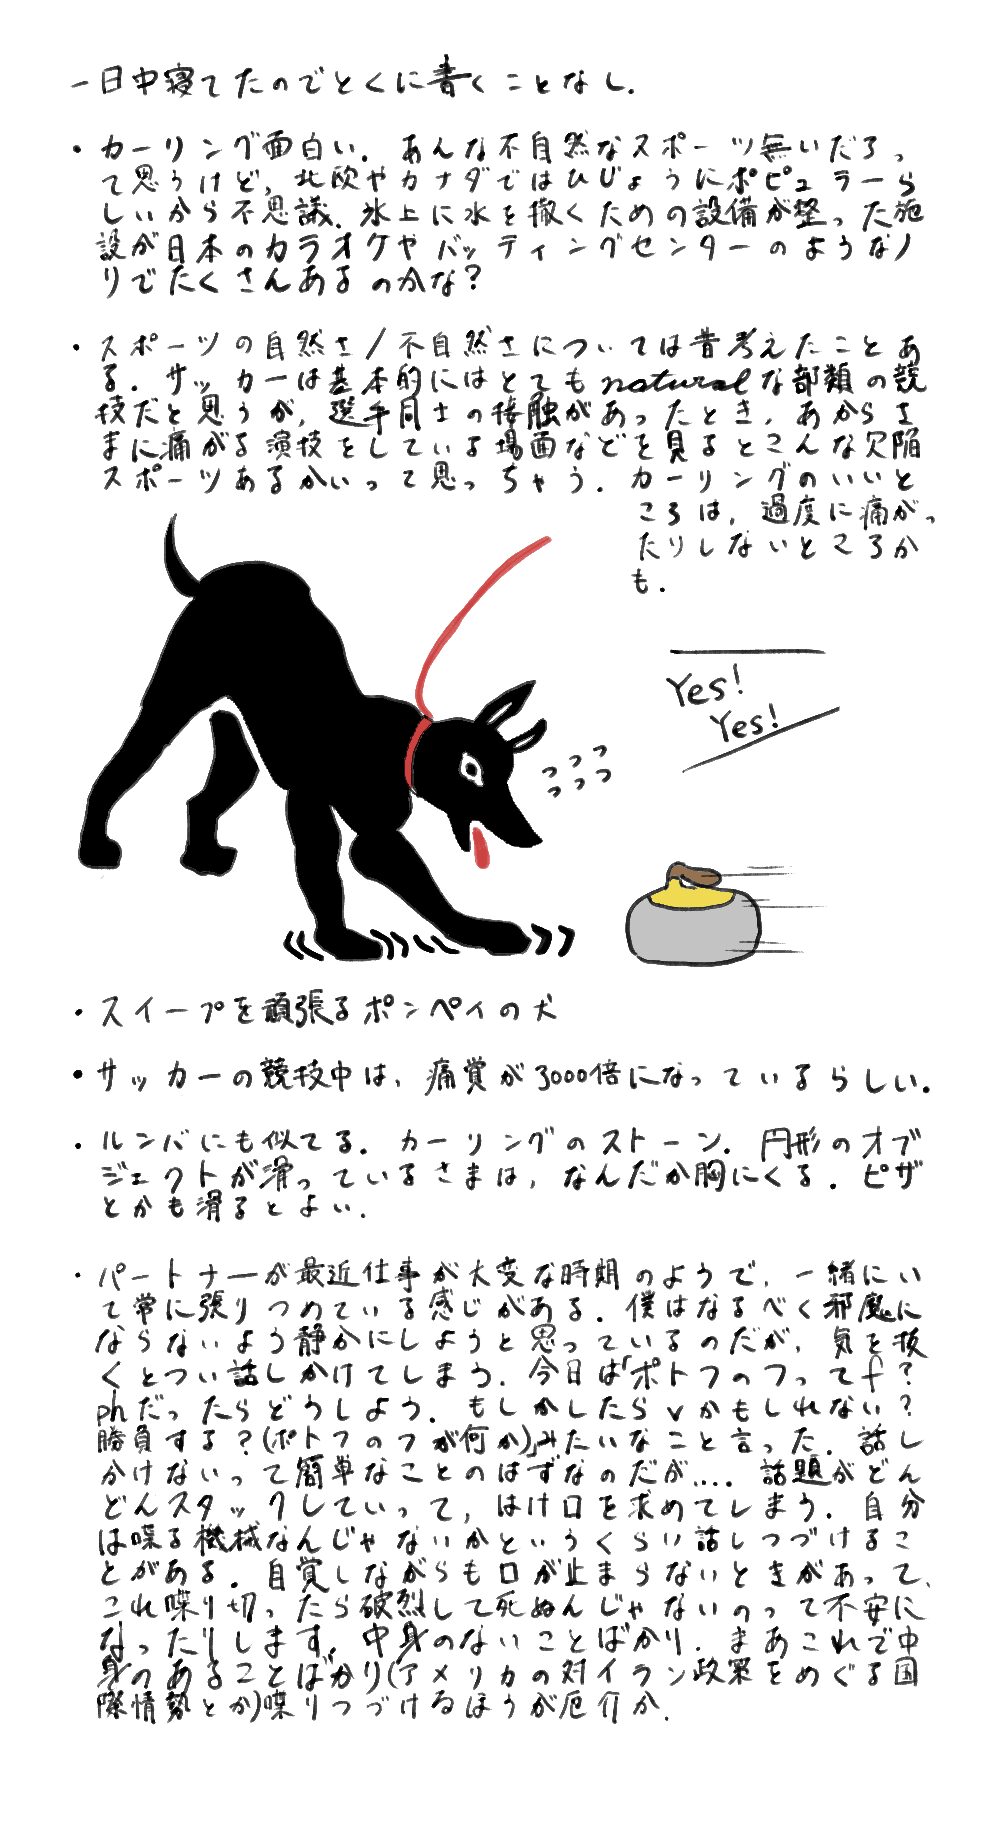 一日中寝てたのでとくに書くことなし.
・カーリング面白い. あんな不自然なスポーツ無いだろっ
て思うけど, 北欧やカナダではひじょうにポピュラーら
しいから不思議. 氷上に水を撒くための設備が整った施
設が日本のカラオケやバッティングセンターのようなノ
リでたくさんあるのかな?
・スポーツの自然さ/不自然さについては昔考えたことあ
る. サッカーは基本的にはとてもnaturalな部類の競
技だと思うが, 選手同士の接触があったとき, あからさ
まに痛がる演技をしている場面などを見るとこんな欠陥
スポーツあるかいって思っちゃう. カーリングのいいと
ころは, 過度に痛がっ
たりしないところか
も.
Yes!
Yes!
・スイープを頑張るポンペイの犬
・サッカーの競技中は, 痛覚が3000倍になっているらしい.
・ルンバにも似てる. カーリングのストーン. 円形のオブ
ジェクトが滑っているさまは, なんだか胸にくる. ピザ
とかも滑るとよい.
・パートナーが最近仕事が大変な時期のようで, 一緒にい
て常に張りつめている感じがある. 僕はなるべく邪魔に
ならないよう静かにしようと思っているのだが, 気を抜
くとつい話しかけてしまう. 今日は「ポトフのフってf?
phだったらどうしよう. もしかしたらvかもしれない?
勝負する?(ポトフのフが何か)」みたいなこと言った. 話し
かけないって簡単なことのはずなのだが.... 話題がどん
どんスタックしていって, はけ口を求めてしまう. 自分
は喋る機械なんじゃないかというくらい話しつづけるこ
とがある. 自覚しながらも口が止まらないときがあって,
これ喋り切ったら破裂して死ぬんじゃないのって不安に
なったりします. 中身のないことばかり. まあこれで中
身のあることばかり(アメリカの対イラン政策をめぐる国
際情勢とか)喋りつづけるほうが厄介か.